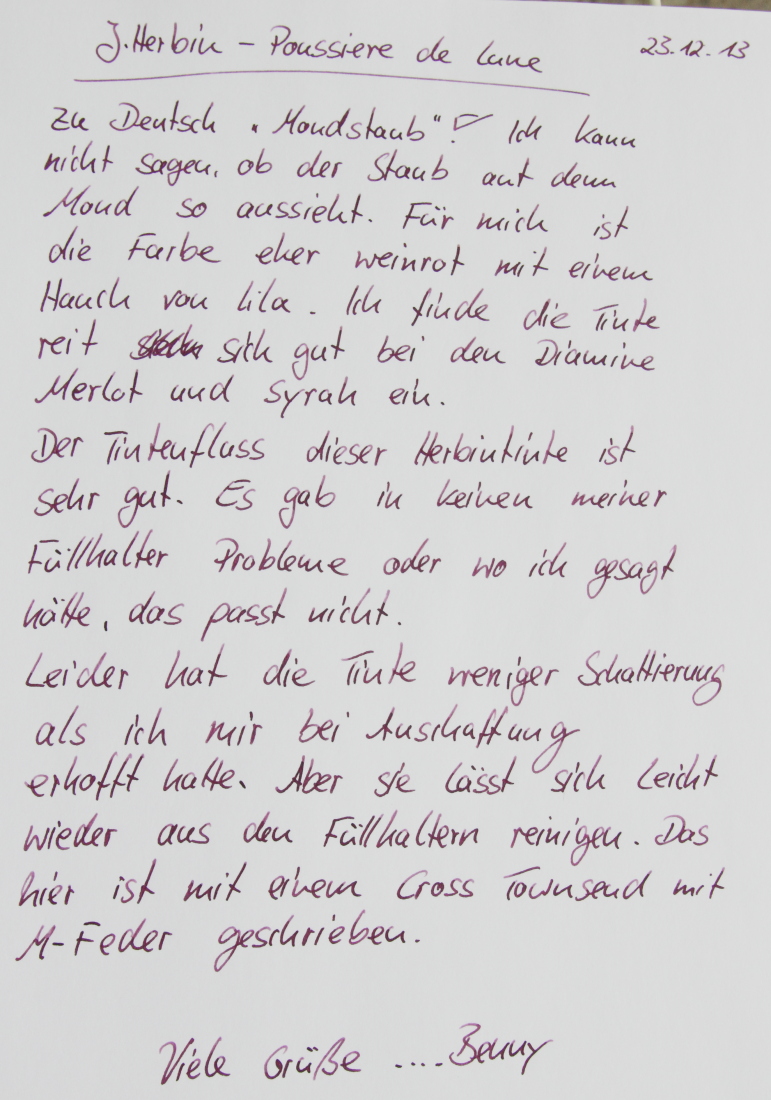 J.Herbin - Poussiere de Lune 23.12.13
Zu Deutsch "Mondstaub"! Ich kann
nicht sagen, ob der Staub auf dem
Mond so aussieht. Für mich ist
die Farbe eher weinrot mit einem
Hauch von Lila. Ich finde die Tinte
reit sich gut bei den Diamine
Merlot und Syrah ein.
Der Tintenfluss dieser Herbintinte ist
sehr gut. Es gab in keinen meiner
Füllhalter Probleme oder wo ich gesagt
hätte, das passt nicht.
Leider hat die Tinte weniger Schattierung
als ich mir bei Anschaffung
erhofft hatte. Aber sie lässt sich leicht
wieder aus den Füllhaltern reinigen. Das
hier ist mit einem Cross Townsend mit
M-Feder geschrieben.
Viele Grüße .... Benny